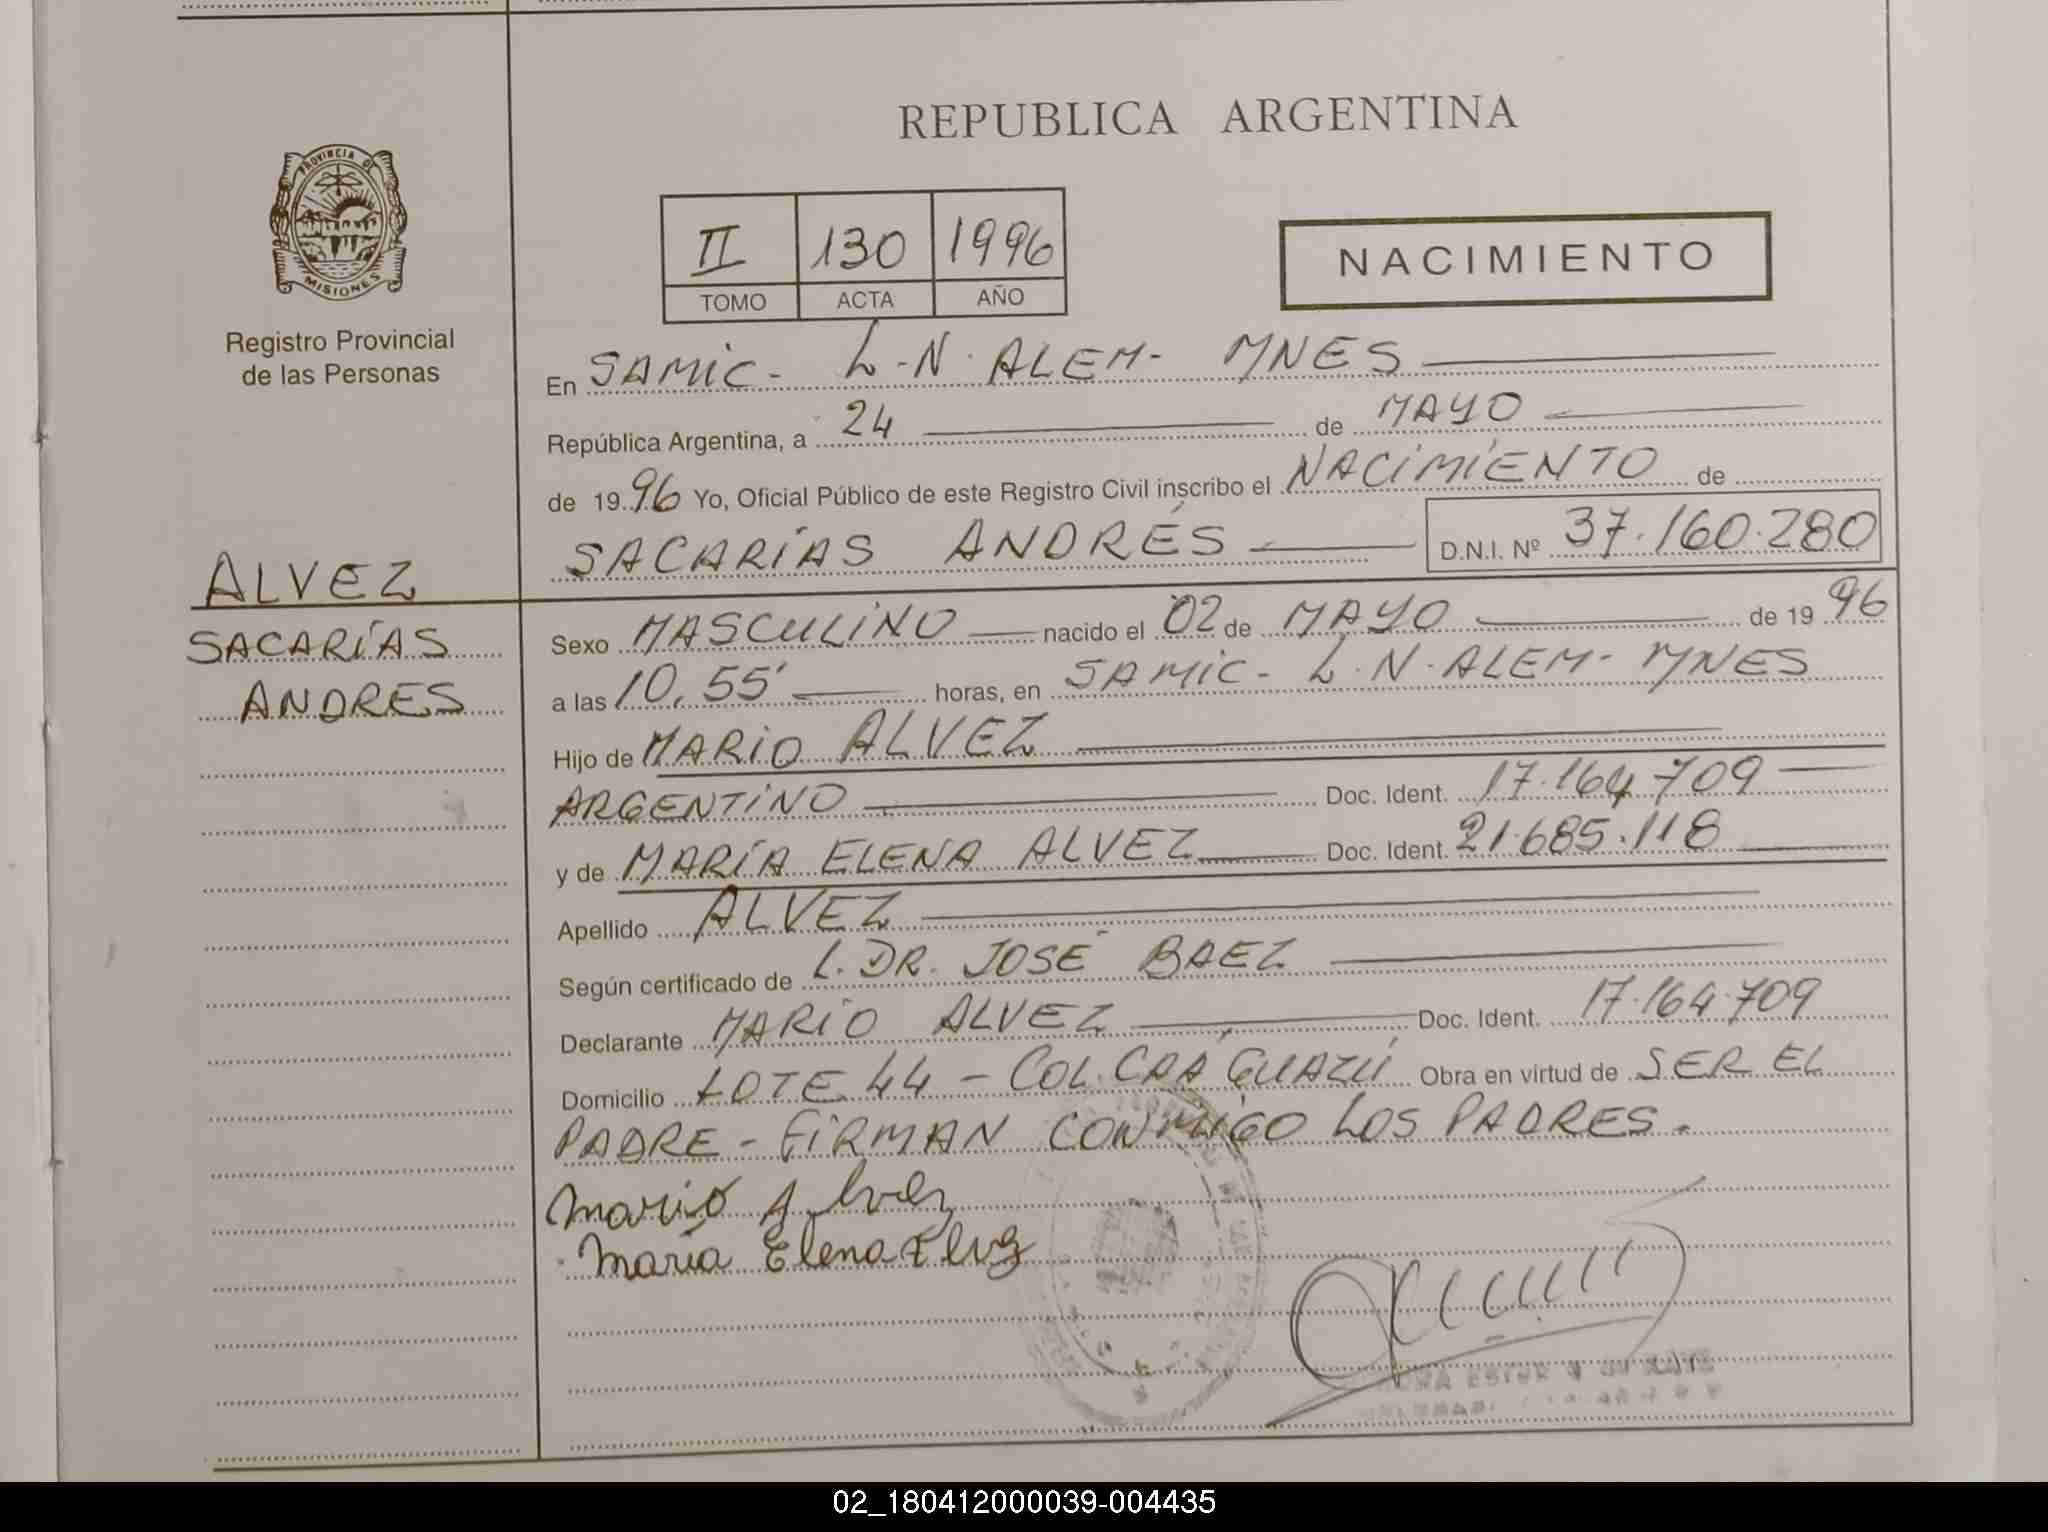 REPUBLICA ARGENTINA
PROVINCIA DE
MISIONES
Registro Provincial
de las Personas
II 130 1996
TOMO ACTA AÑO
NACIMIENTO
En SAMIC - L.N. ALEM - MNES
República Argentina, a 24 de MAYO
de 1996 Yo, Oficial Público de este Registro Civil inscribo el NACIMIENTO de
SACARÍAS ANDRÉS D.N.I. Nº 37.160.280
ALVEZ
SACARÍAS
ANDRES
Sexo MASCULINO nacido el 02 de MAYO de 1996
a las 10,55' horas, en SAMIC - L.N. ALEM - MNES
Hijo de MARIO ALVEZ
ARGENTINO Doc. Ident. 17.164.709
y de MARÍA ELENA ALVEZ Doc. Ident. 21.685.118
Apellido ALVEZ
Según certificado de L. DR. JOSÉ BAEZ
Declarante MARIO ALVEZ Doc. Ident. 17.164.709
Domicilio LOTE 44 - COL. CAÁ GUAZÚ Obra en virtud de SER EL
PADRE - FIRMAN CONMIGO LOS PADRES.
Mario Alvez
María Elena
02_180412000039-004435